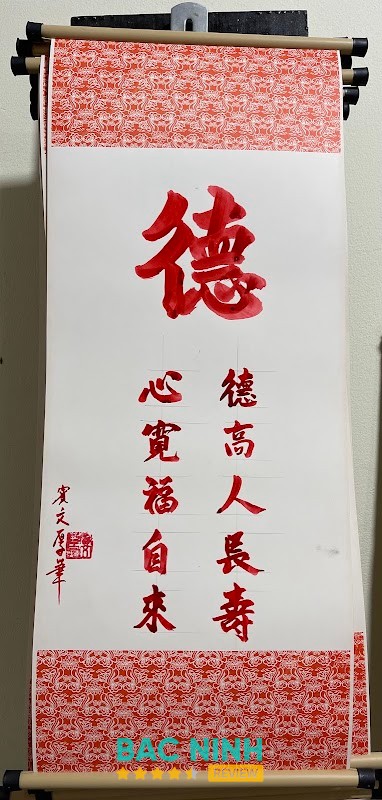 德
德高人長壽
心寬福自來
文厚筆
BAC NINH
REVIEW